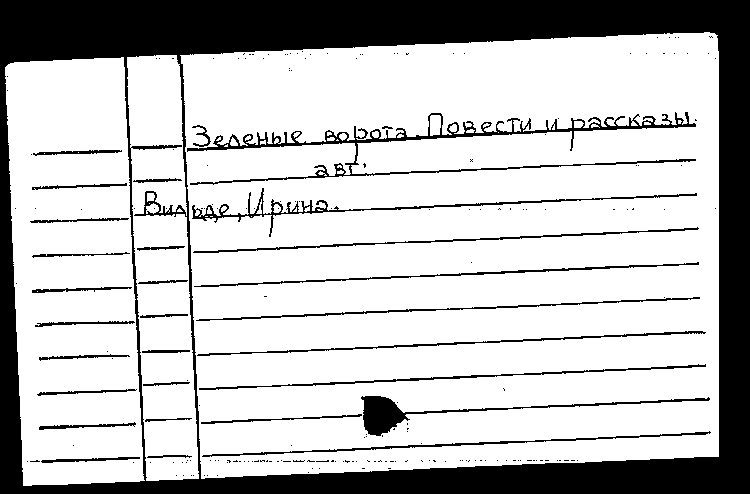 Зеленые ворота. Повести и рассказы.
авт:
Вильде, Ирина.